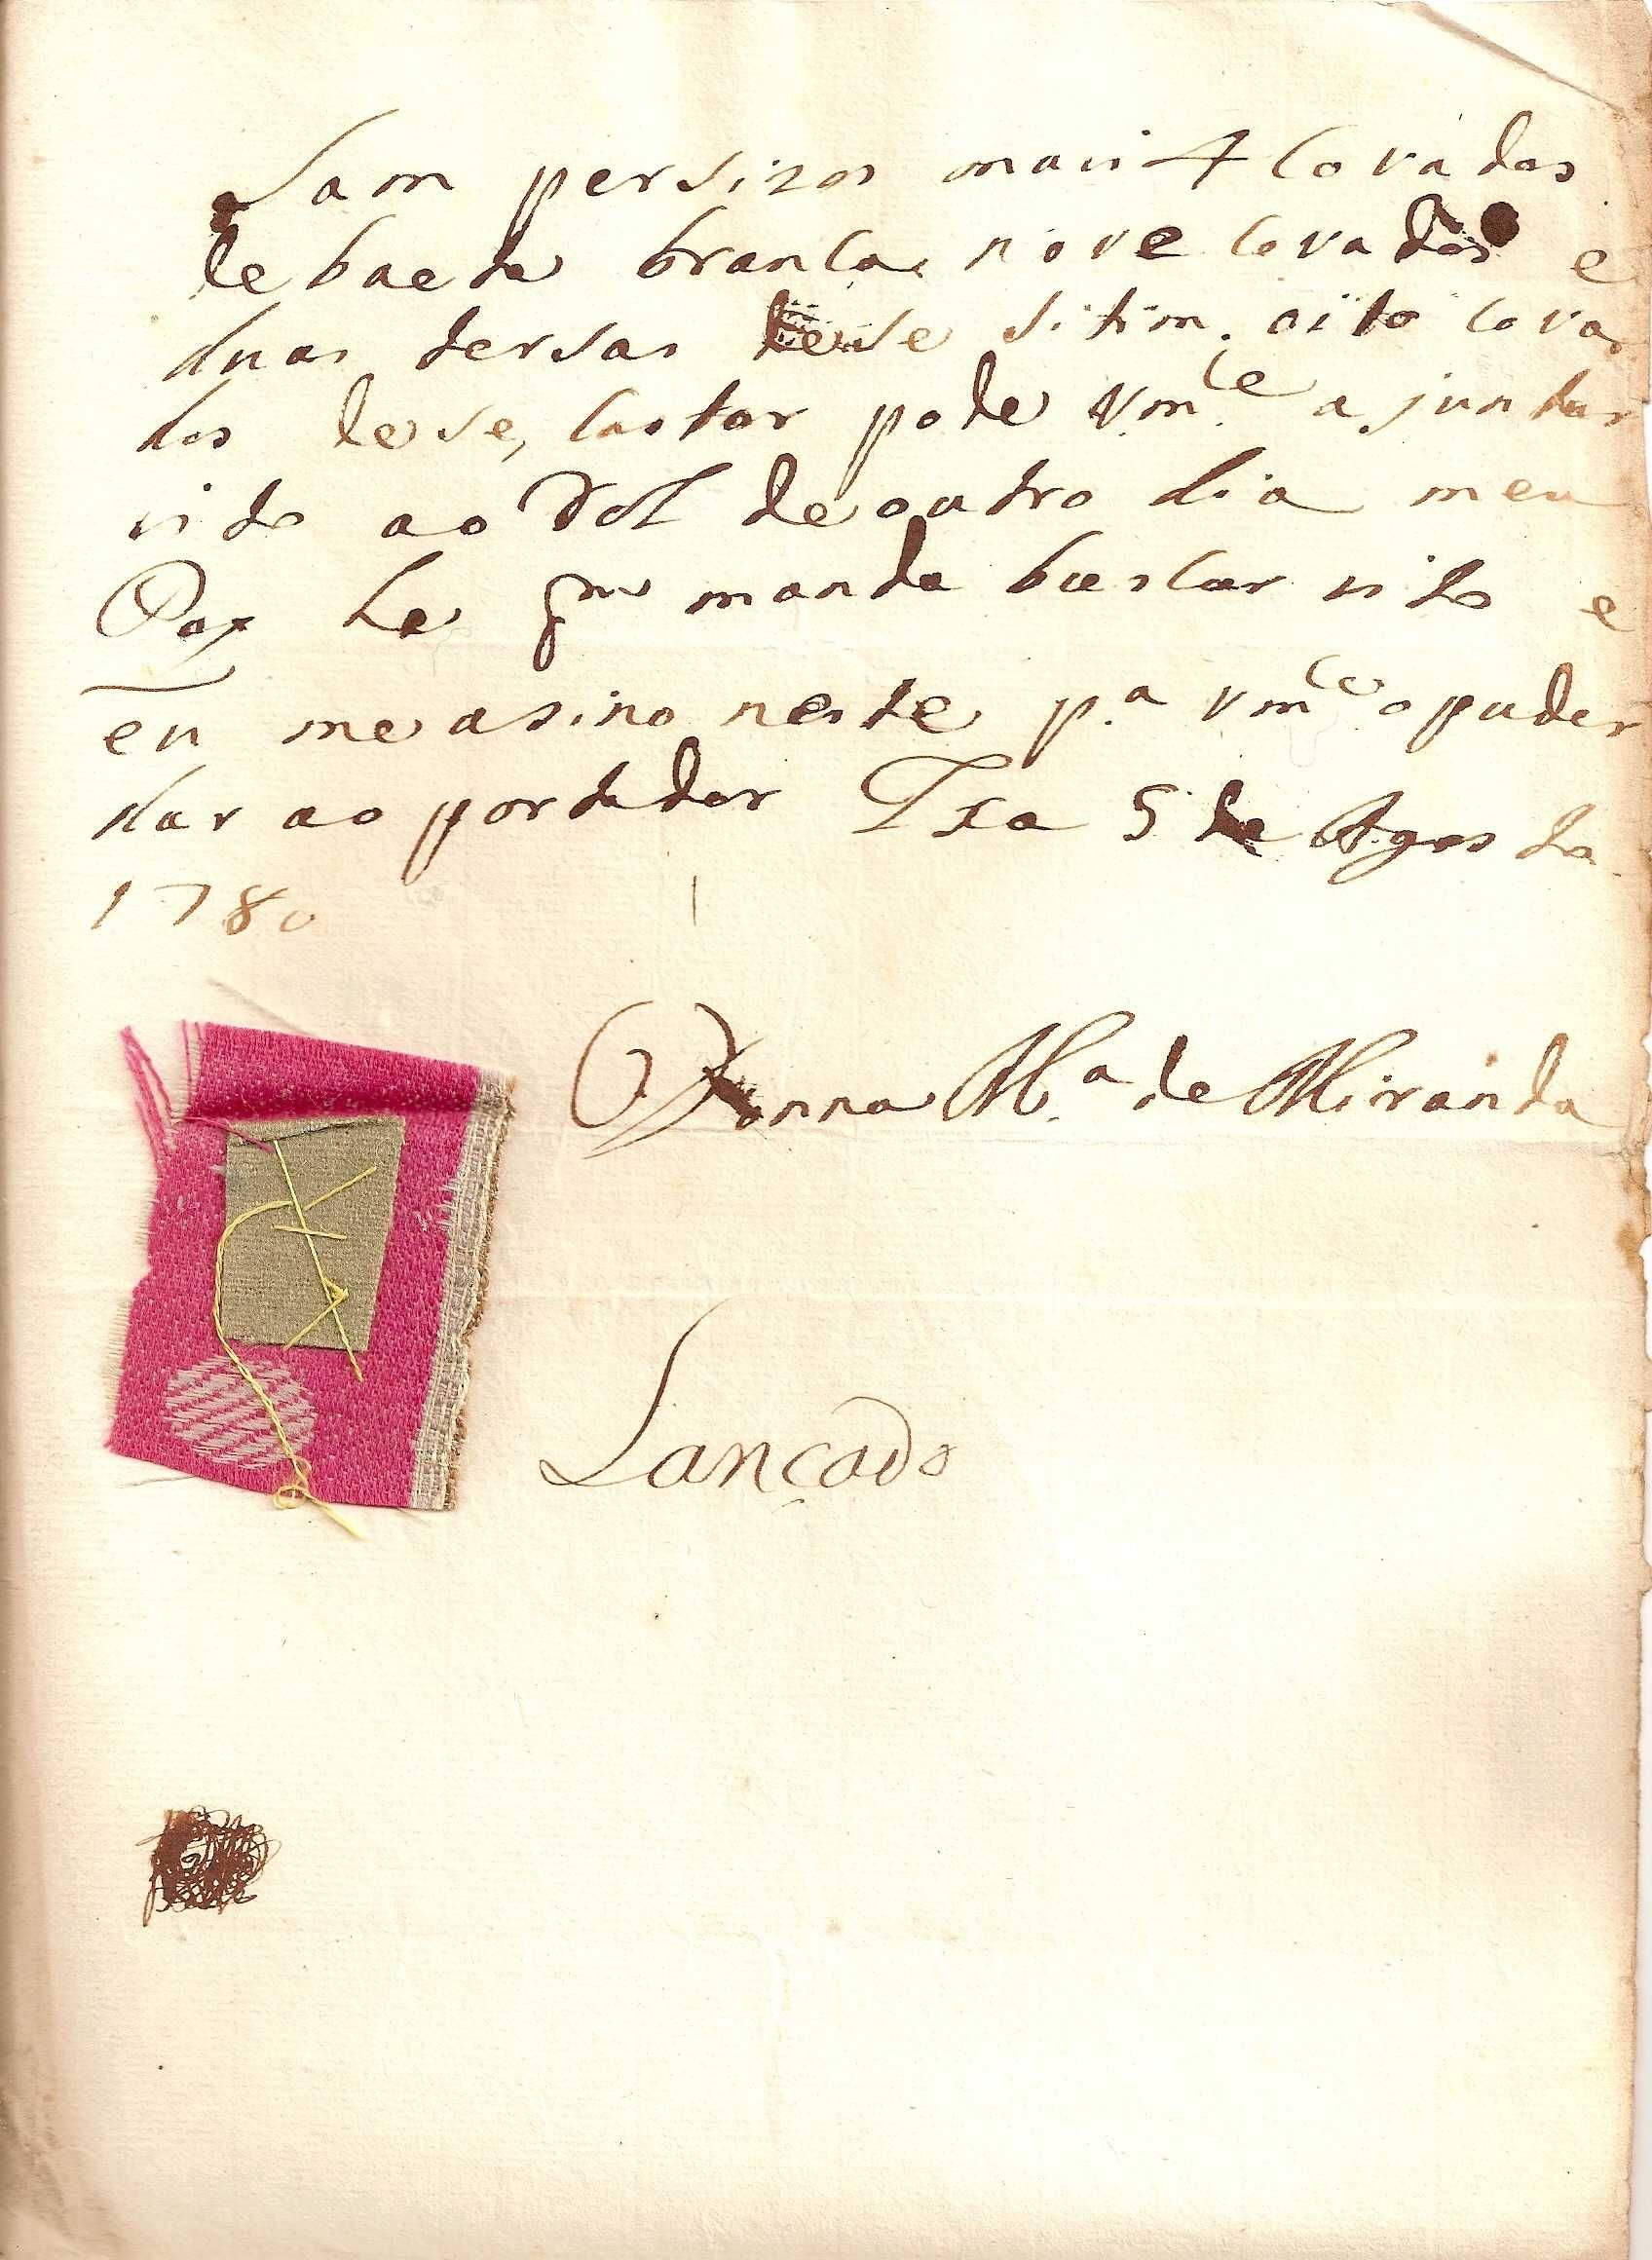 Sam persizos mais 4 Covados
de baeta branca, nove covados e
duas tersas dese sitim. oito cova
dos dese, Castor pode Vm.ce ajuntar
isto ao Rol de outro dia meu
Pay he q.m manda buscar isto e
eu me asino neste p.a vm.ce o puder
dar ao portador Txa 5 de Agosto
1780
Donna M.a de Miranda
Lançado